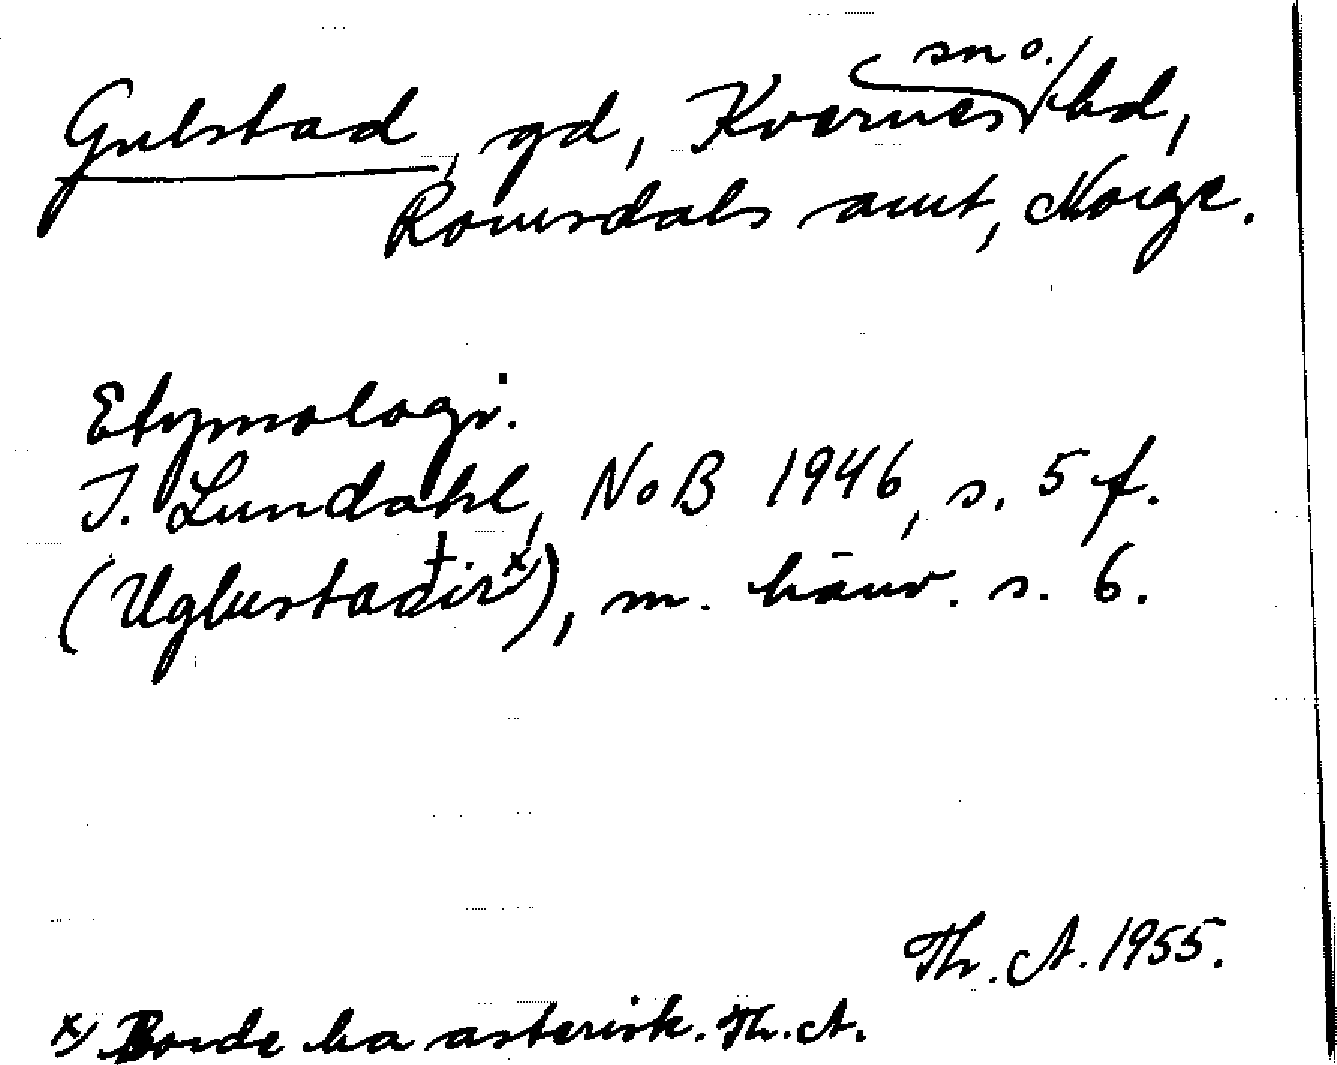 Gulstad, gd, Kvernes sn o. /hd,
Romsdals amt, Norge.
Etymologi.
I. Lundahl, NoB 1946, s. 5 f.
(Uglustaðir x)), m. hänv. s. 6.
Th. A. 1955.
x) Borde ha asterisk. Th. A.